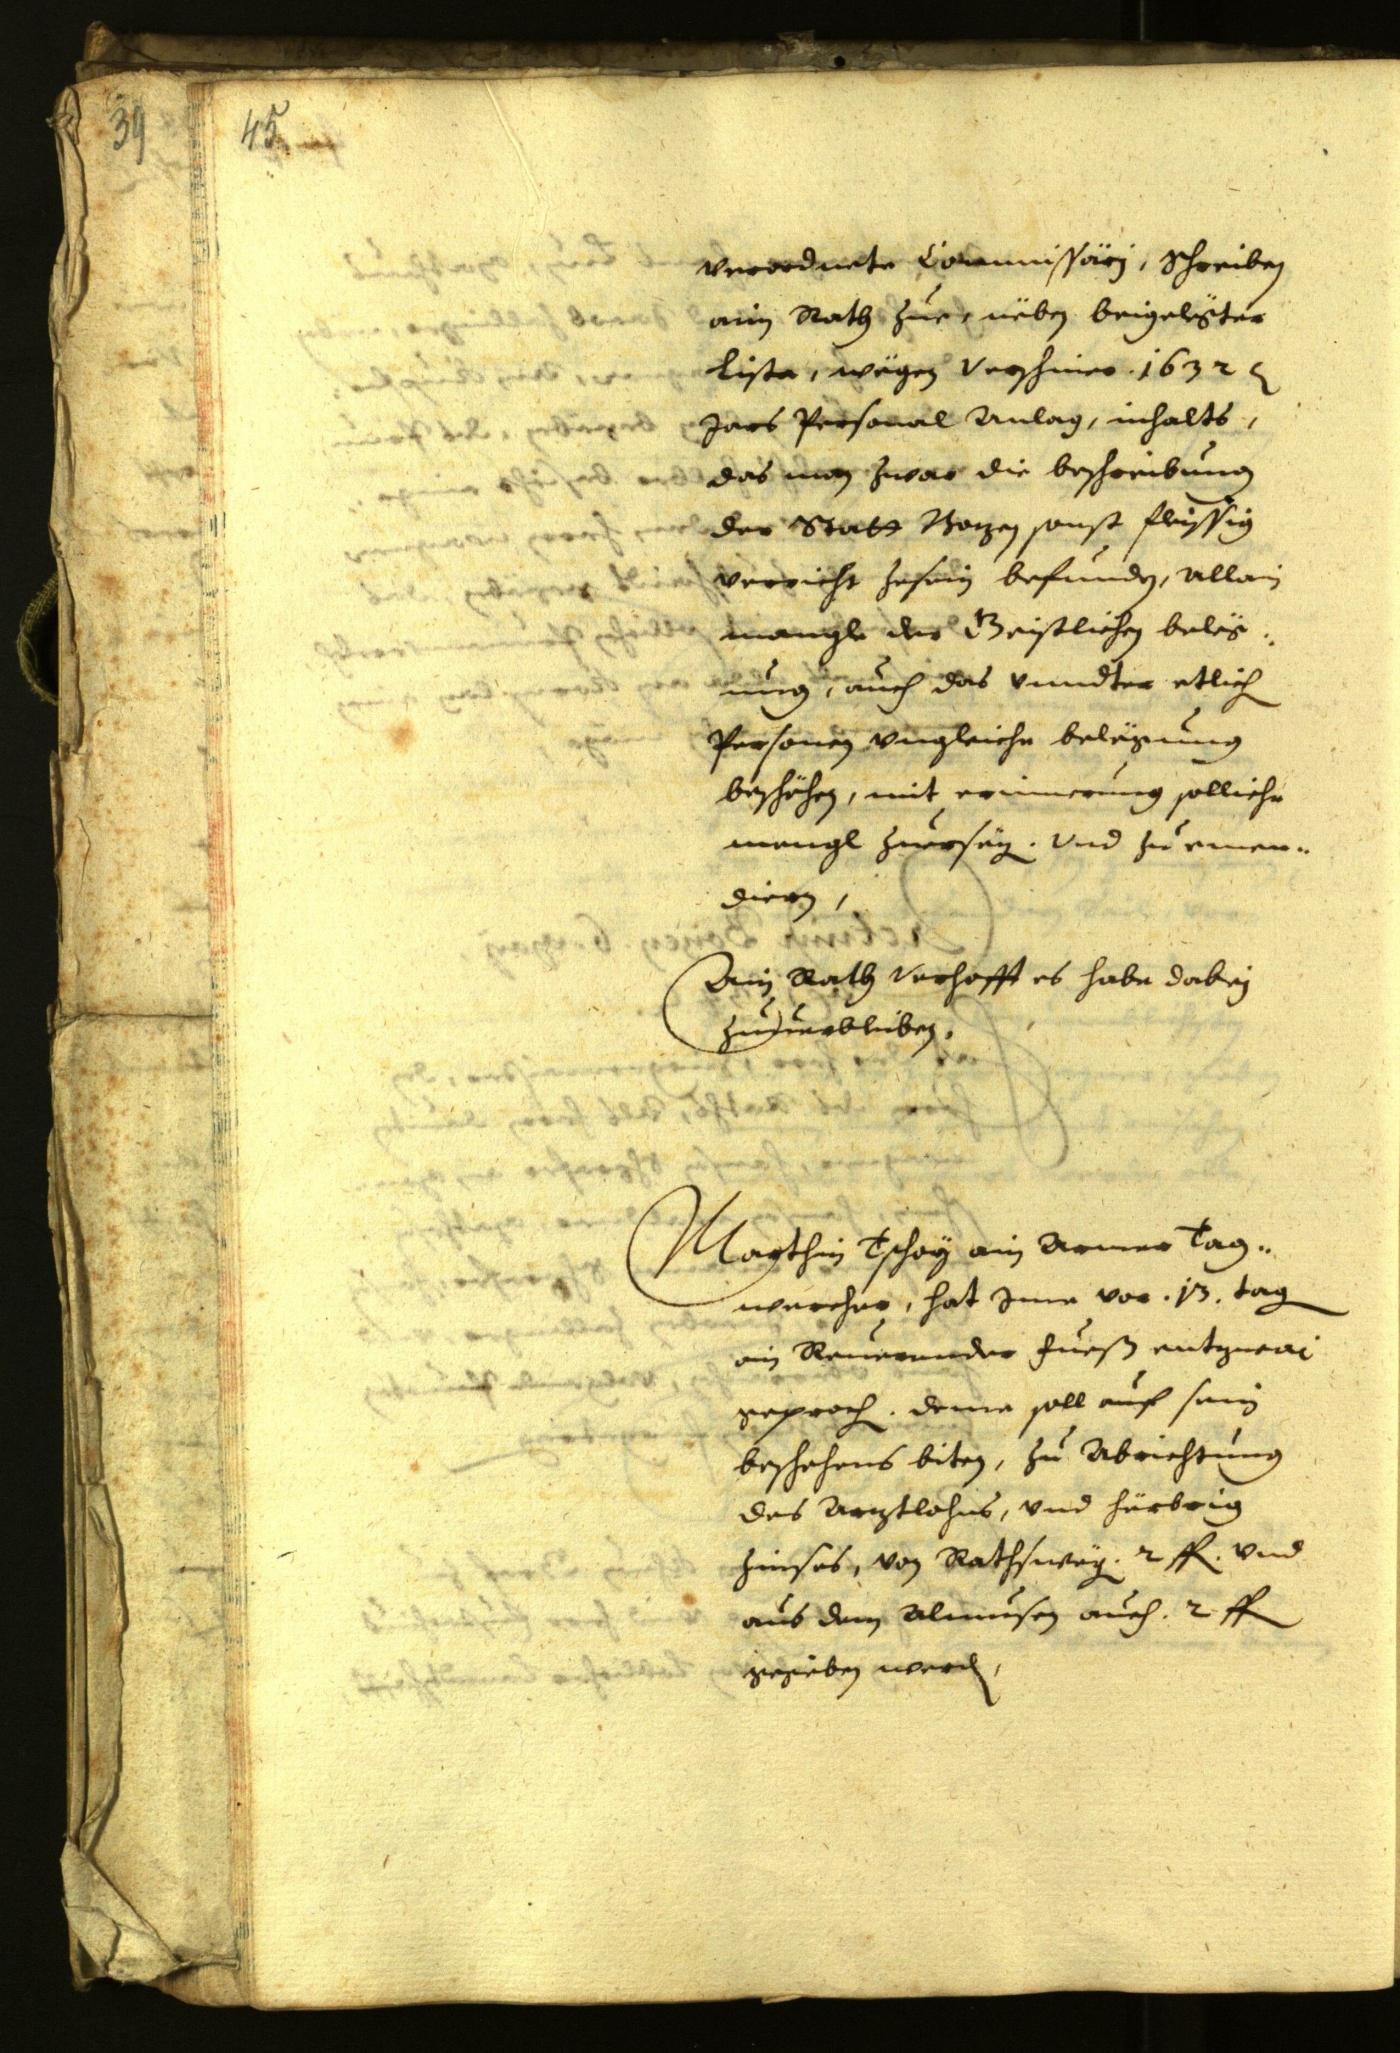 39
45
verordnete Commissärj, Schreiben
ain Rath zue, neben beigelegter
Lista, wegen verschiner 1632
Jars Personal Anlag, inhalts,
das man zwar die beschreibung
der Statt Bozen sonst fleissig
verricht zesein befunden, Allain
mangle der Geistlichen beleg=
ung, auch das vnndter etlich
Personen vngleiche belegung
beschehen, mit erinnerung solliche
mengl zuersezen. Vnd zu emen=
diern,
Ain Rath verhofft es habe dabey
zuuerbleiben.
Marthin Tschoy ain Armer Tag=
wercher, hat Ime vor 13. tag
ain Reuerender fuess entzwai
geproch. deme soll auf sein
beschehens biten, zu Abrichtung
des Arztlohns, vnd herbrig
zinses, von Rathsweg. 2 fl. vnd
aus dem Almusen auch. 2 fl
gegeben werden,